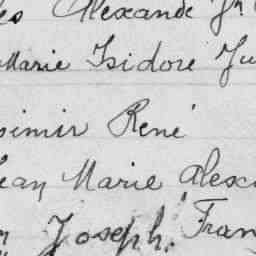 es Alexand Jr
Marie Isidore Ju
simir René
Jean Marie Alexa
Joseph. Fran